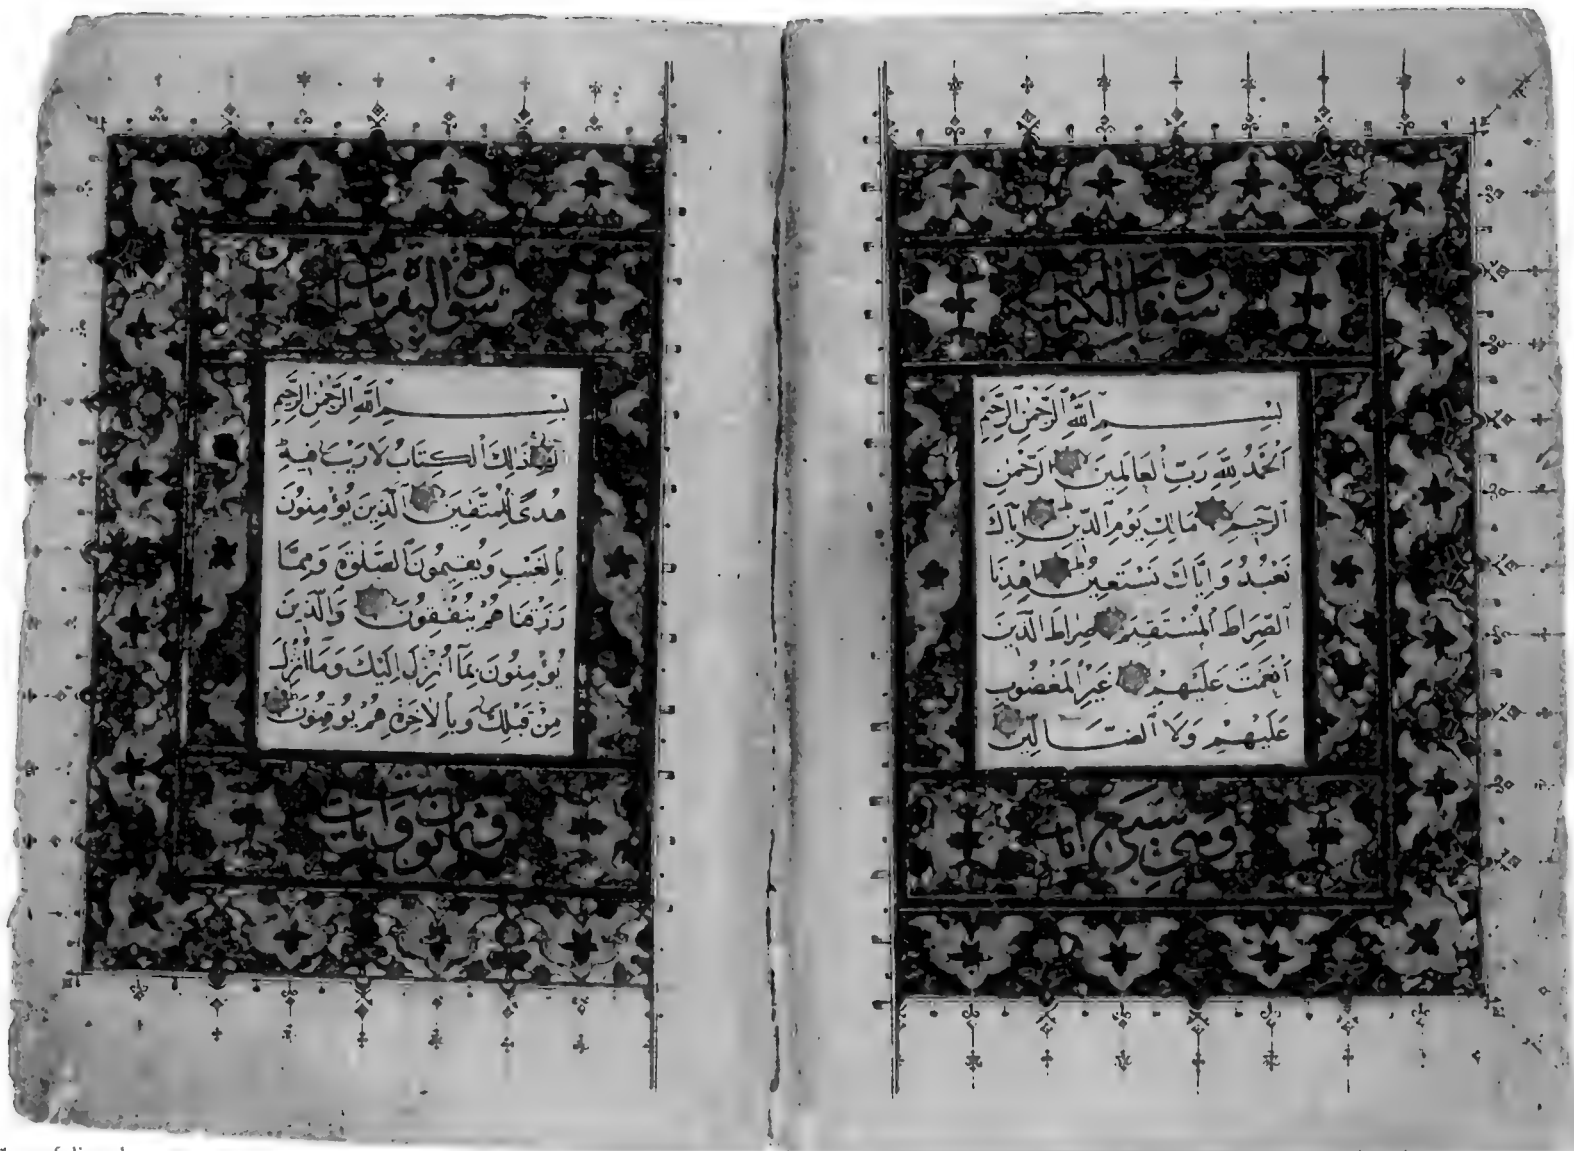 سورة فاتحة الكتاب
بِسْمِ ٱللَّهِ ٱلرَّحْمٰنِ ٱلرَّحِيمِ
اَلْحَمْدُ لِلَّهِ رَبِّ ٱلْعَالَمِينَ ٱلرَّحْمٰنِ
ٱلرَّحِيمِ مَالِكِ يَوْمِ ٱلدِّينِ اِيَّاكَ
نَعْبُدُ وَاِيَّاكَ نَسْتَعِينُ اِهْدِنَا
ٱلصِّرَاطَ ٱلْمُسْتَقِيمَ صِرَاطَ ٱلَّذِينَ
اَنْعَمْتَ عَلَيْهِمْ غَيْرِ ٱلْمَغْضُوبِ
عَلَيْهِمْ وَلَا ٱلضَّالِّينَ
وهي سبع آيات
سورة البقرة مائتان
بِسْمِ ٱللَّهِ ٱلرَّحْمٰنِ ٱلرَّحِيمِ
الٓمٓ ذَالِكَ ٱلْكِتَابُ لَا رَيْبَ فِيهِ
هُدًى لِلْمُتَّقِينَ ٱلَّذِينَ يُؤْمِنُونَ
بِالْغَيْبِ وَيُقِيمُونَ ٱلصَّلٰوةَ وَمِمَّا
رَزَقْنَاهُمْ يُنْفِقُونَ وَالَّذِينَ
يُؤْمِنُونَ بِمَآ اُنْزِلَ اِلَيْكَ وَمَآ اُنْزِلَ
مِنْ قَبْلِكَ وَبِالْاٰخِرَةِ هُمْ يُوقِنُونَ
وثمانون آيات